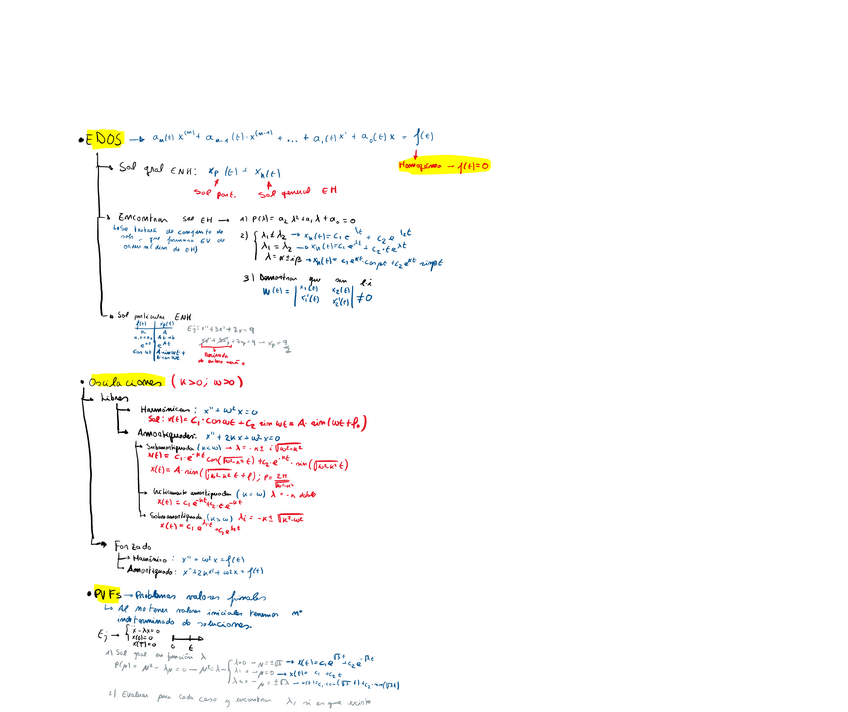 • EDOS → aₙ(t) x⁽ⁿ⁾ + aₙ₋₁(t)·x⁽ⁿ⁻¹⁾ + ... + a₁(t) x' + a₀(t) x = f(t)
Homogénea → f(t)=0
Sol gral ENH: xp(t) + xh(t)
Sol part. Sol general EH
Encontrar sol EH → 1) P(λ) = a₂ λ² + a₁ λ + a₀ = 0
2) λ₁ ≠ λ₂ → xh(t) = c₁ e^λ₁t + c₂ e^λ₂t
λ₁ = λ₂ → xh(t) = c₁ e^λt + c₂·t e^λt
λ = α ± iβ → xh(t) = c₁ e^αt cos βt + c₂ e^αt sin βt
3) Demostrar que son li
W(t) = | x₁(t) x₂(t) |
| x₁'(t) x₂'(t) | ≠ 0
Sol particular ENH
f(t) xp(t)
a A
e^λt
cos wt A·sin wt +
Ej: x'' + 3x' + 2x = 9
derivada
• Oscilaciones (k>0; w>0)
Libres
Harmónicas: x'' + w² x = 0
Sol: x(t) = C₁·cos wt + C₂ sin wt = A·sin(wt + φ₀)
Amortiguadas: x'' + 2kx + w² x = 0
Subamortiguada (k<w) → λ = -k ± i √w²-k²
x(t) = C₁·e^-kt cos(√w²-k² t) + C₂·e^-kt·sin(√w²-k² t)
x(t) = A·sin(√w²-k² t + φ); P = 2π/√w²-k²
Críticamente amortiguada (k = w) λ = -k doble
x(t) = C₁ e^-kt + C₂·t e^-kt
Sobreamortiguada (k>w) λi = -k ± √k²-w²
x(t) = C₁ e^λ₁t + C₂ e^λ₂t
Forzado
Harmónico: x'' + w² x = f(t)
Amortiguado: x'' + 2kx' + w² x = f(t)
• PVFs → Problemas valores finales
↳ Al no tener valores iniciales tenemos nº
indeterminado de soluciones.
Ej → x - λx = 0
x(0) = 0
x(T) = 0
1) Sol gral en función λ
P(μ) = μ² - λμ = 0 → μ² = λ
2) Evaluar para cada caso y encontrar λ, si es que existe